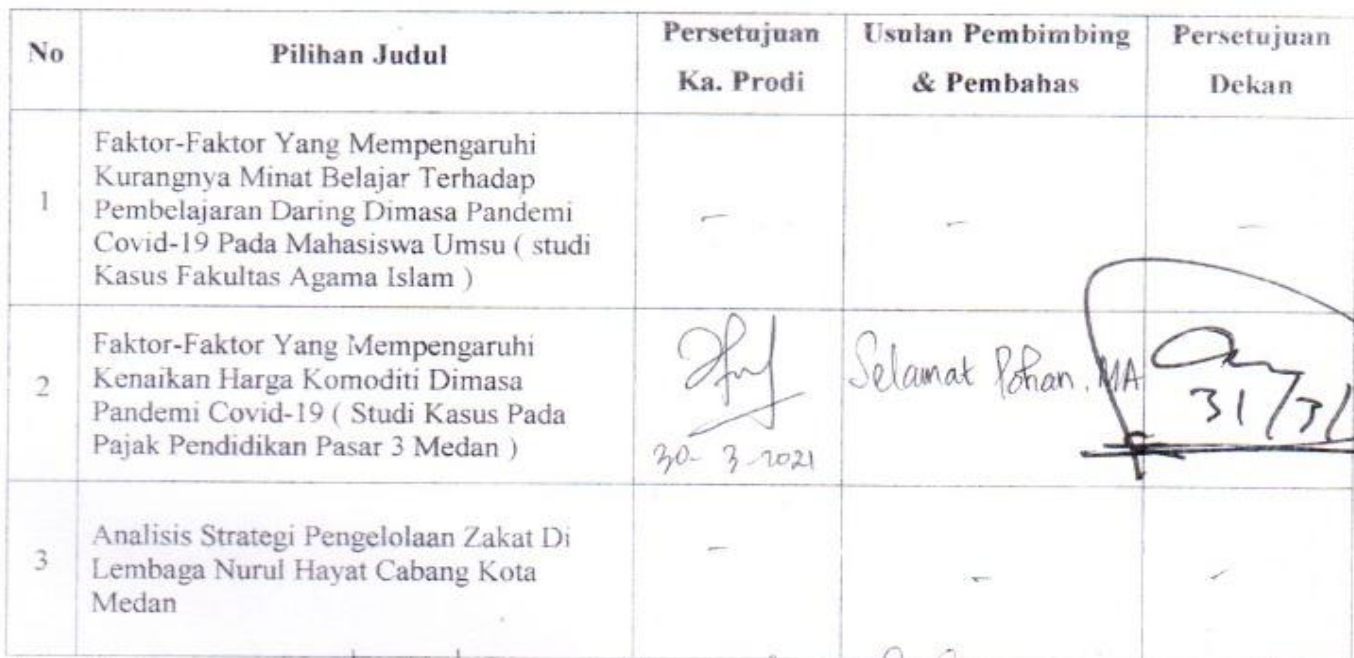 No
Pilihan Judul
Persetujuan
Ka. Prodi
Usulan Pembimbing
& Pembahas
Persetujuan
Dekan
1
Faktor-Faktor Yang Mempengaruhi
Kurangnya Minat Belajar Terhadap
Pembelajaran Daring Dimasa Pandemi
Covid-19 Pada Mahasiswa Umsu ( studi
Kasus Fakultas Agama Islam )
-
-
-
2
Faktor-Faktor Yang Mempengaruhi
Kenaikan Harga Komoditi Dimasa
Pandemi Covid-19 ( Studi Kasus Pada
Pajak Pendidikan Pasar 3 Medan )
30-3-2021
Selamat Pohan. MA
31/3/
3
Analisis Strategi Pengelolaan Zakat Di
Lembaga Nurul Hayat Cabang Kota
Medan
-
-
-